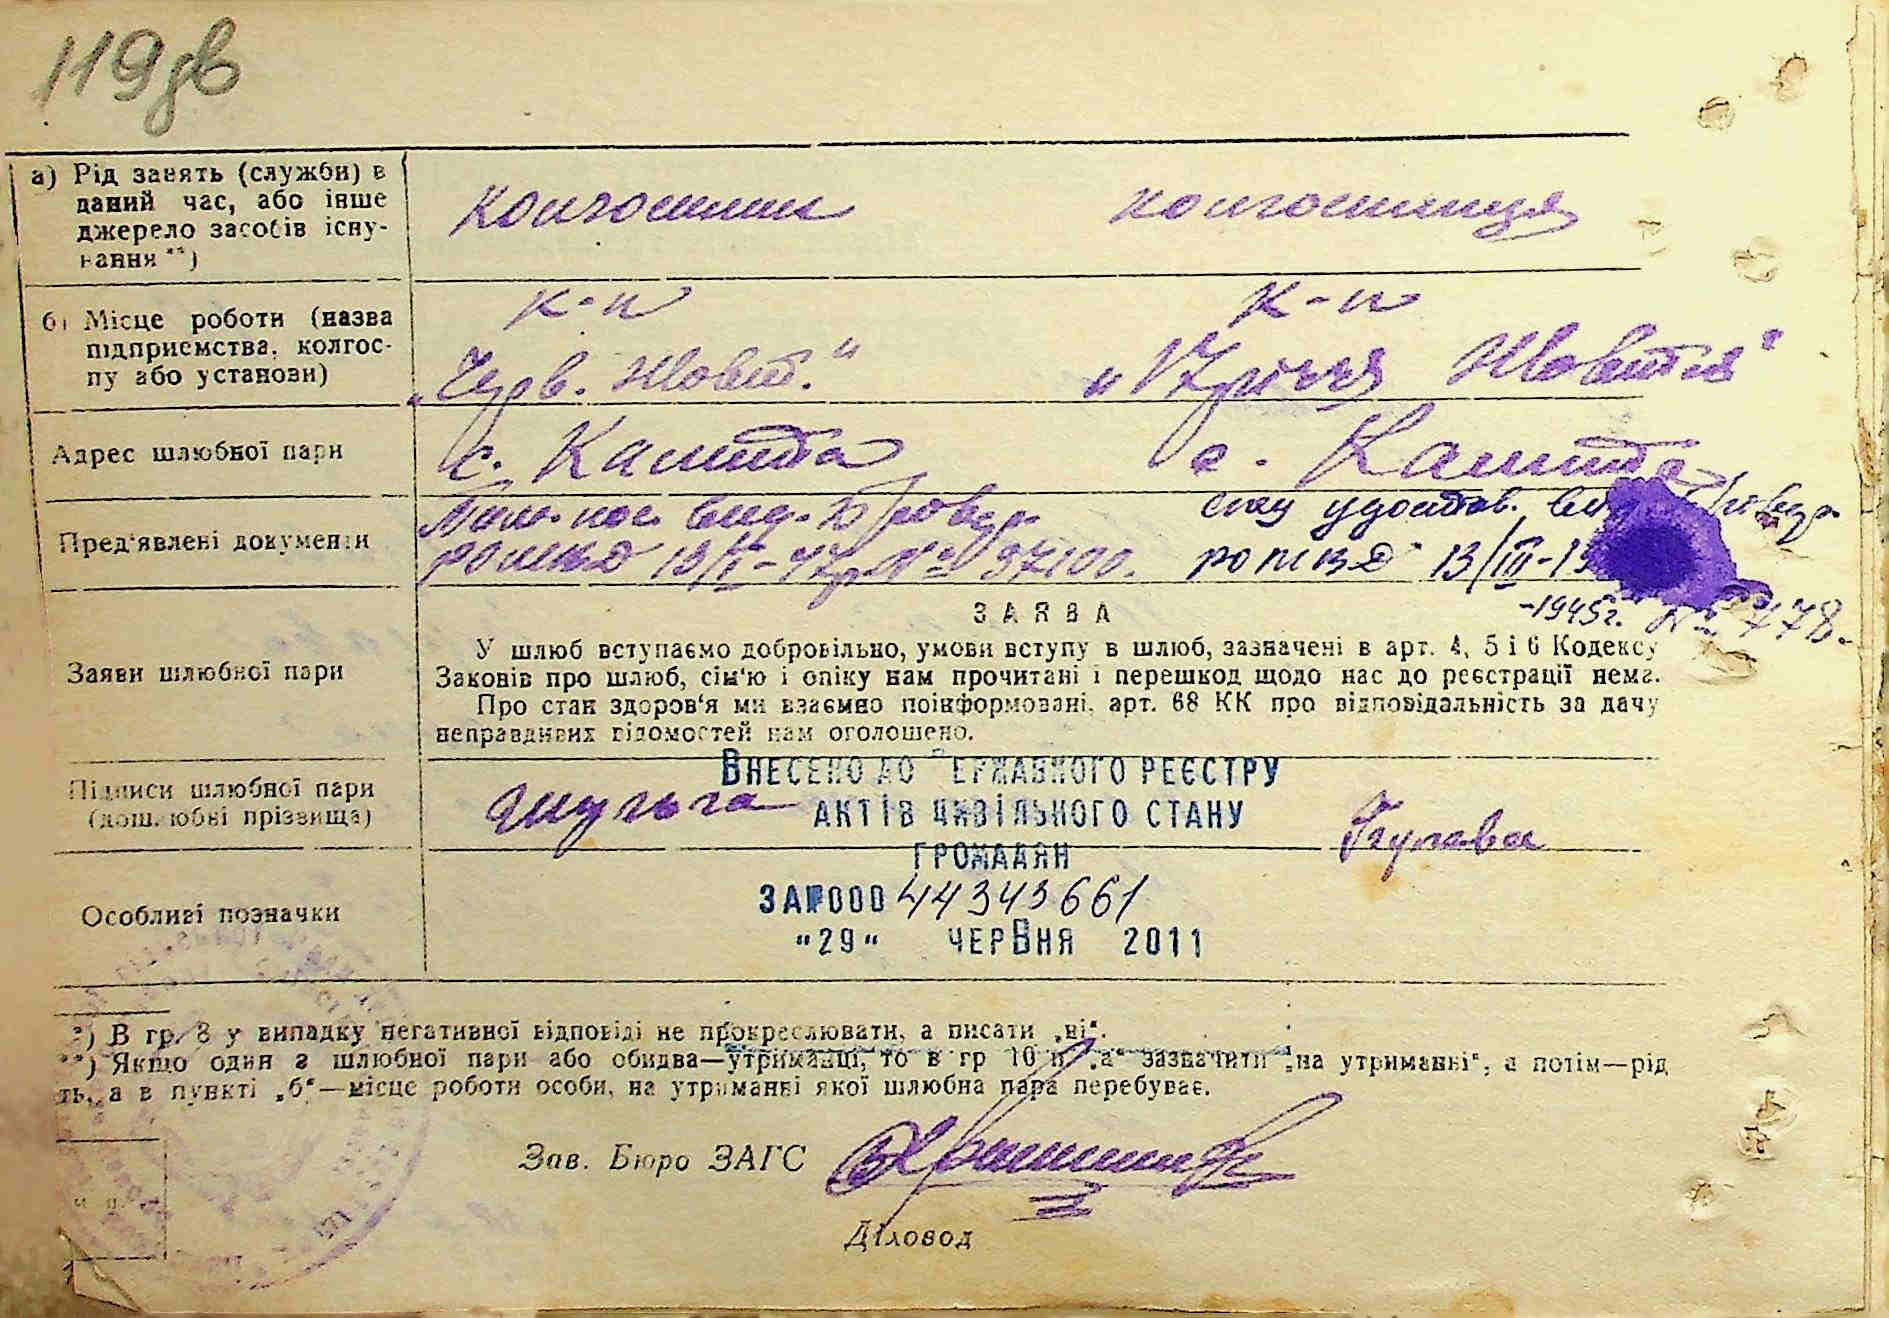 119 дв
а) Рід занять (служби) в
даний час, або інше
джерело засобів існу-
вання **)
колгоспник колгоспниця
б) Місце роботи (назва
підприємства, колгос-
пу або установи)
к-п к-п
„Черв. Жовт." „17 річчя Жовтня"
Адрес шлюбної пари
с. Кашта с. Кашта
Пред'явлені документи
вид.
13/ -47р № 37100. 13/III-19
-1945г. № 778.
Заяви шлюбної пари
ЗАЯВА
У шлюб вступаємо добровільно, умови вступу в шлюб, зазначені в арт. 4, 5 і 6 Кодексу
Законів про шлюб, сім'ю і опіку нам прочитані і перешкод щодо нас до реєстрації нема.
Про стан здоров'я ми взаємно поінформовані, арт. 68 КК про відповідальність за дачу
неправдивих відомостей нам оголошено.
Підписи шлюбної пари
(дошлюбні прізвища)
Шульга
Внесено до Державного реєстру
актів цивільного стану
громадян
ЗА№000 44343661
"29" червня 2011
Особливі позначки
*) В гр. 8 у випадку негативної відповіді не прокреслювати, а писати „ні".
**) Якщо один з шлюбної пари або обидва—утриманці, то в гр 10 п. „а" зазначити „на утриманні", а потім—рід
ть, а в пункті „б"—місце роботи особи, на утриманні якої шлюбна пара перебуває.
Зав. Бюро ЗАГС
Діловод
м. п.